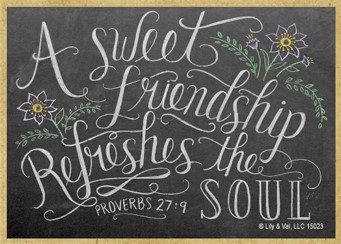 A sweet
friendship
Refreshes the
SOUL
PROVERBS 27:9
© Lily & Val, LLC 15023